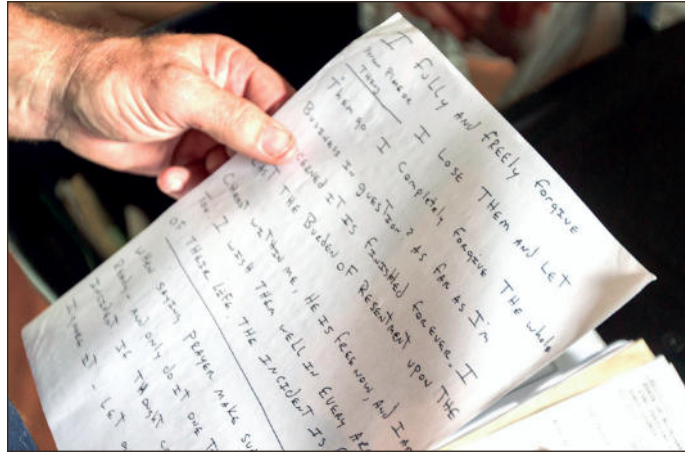 I fully and freely forgive
I lose them and let
Them go I completely forgive the whole
Business in question? as far as I'm
it is finished forever. I
the Burden of Resentment upon the
Christ within me, he is free now, and I
I wish them well in every
of their life, the incident is
when saying prayer make
and only do it one
incident if thought
Ignore it - let